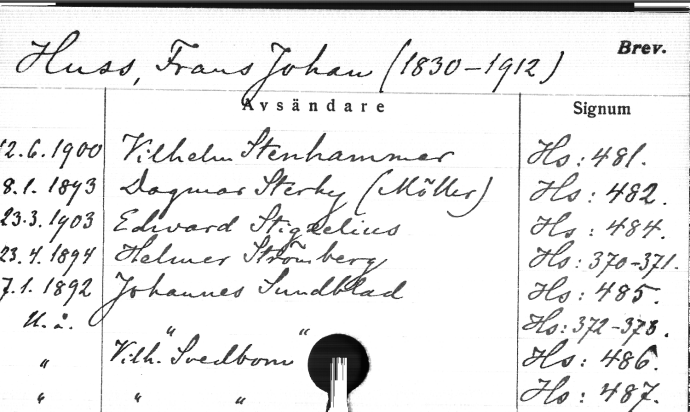 Huss, Frans Johan (1830-1912) Brev.
Avsändare Signum
12.6.1900 Vilhelm Stenhammar Hs: 481.
8.1.1893 Dagmar Sterky (Möller) Hs: 482.
23.3.1903 Edward Stigzelius Hs: 484.
23.4.1894 Helmer Strömberg Hs: 370-371.
7.1.1892 Johannes Sundblad Hs: 485.
U.å. " " Hs: 372-373.
" Vilh. Svedbom Hs: 486.
" " " Hs: 487.